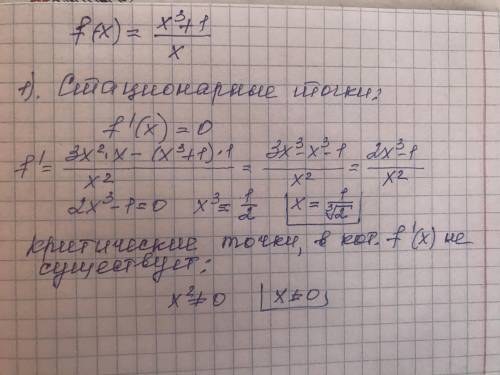 f(x) = (x³+1)/x
1). Стационарные точки:
f'(x) = 0
f' = (3x²·x - (x³+1)·1)/x² = (3x³-x³-1)/x² = (2x³-1)/x²
2x³-1=0 x³=1/2 x=1/∛2
критические точки, в кот. f'(x) не
существует:
x²≠0 x≠0